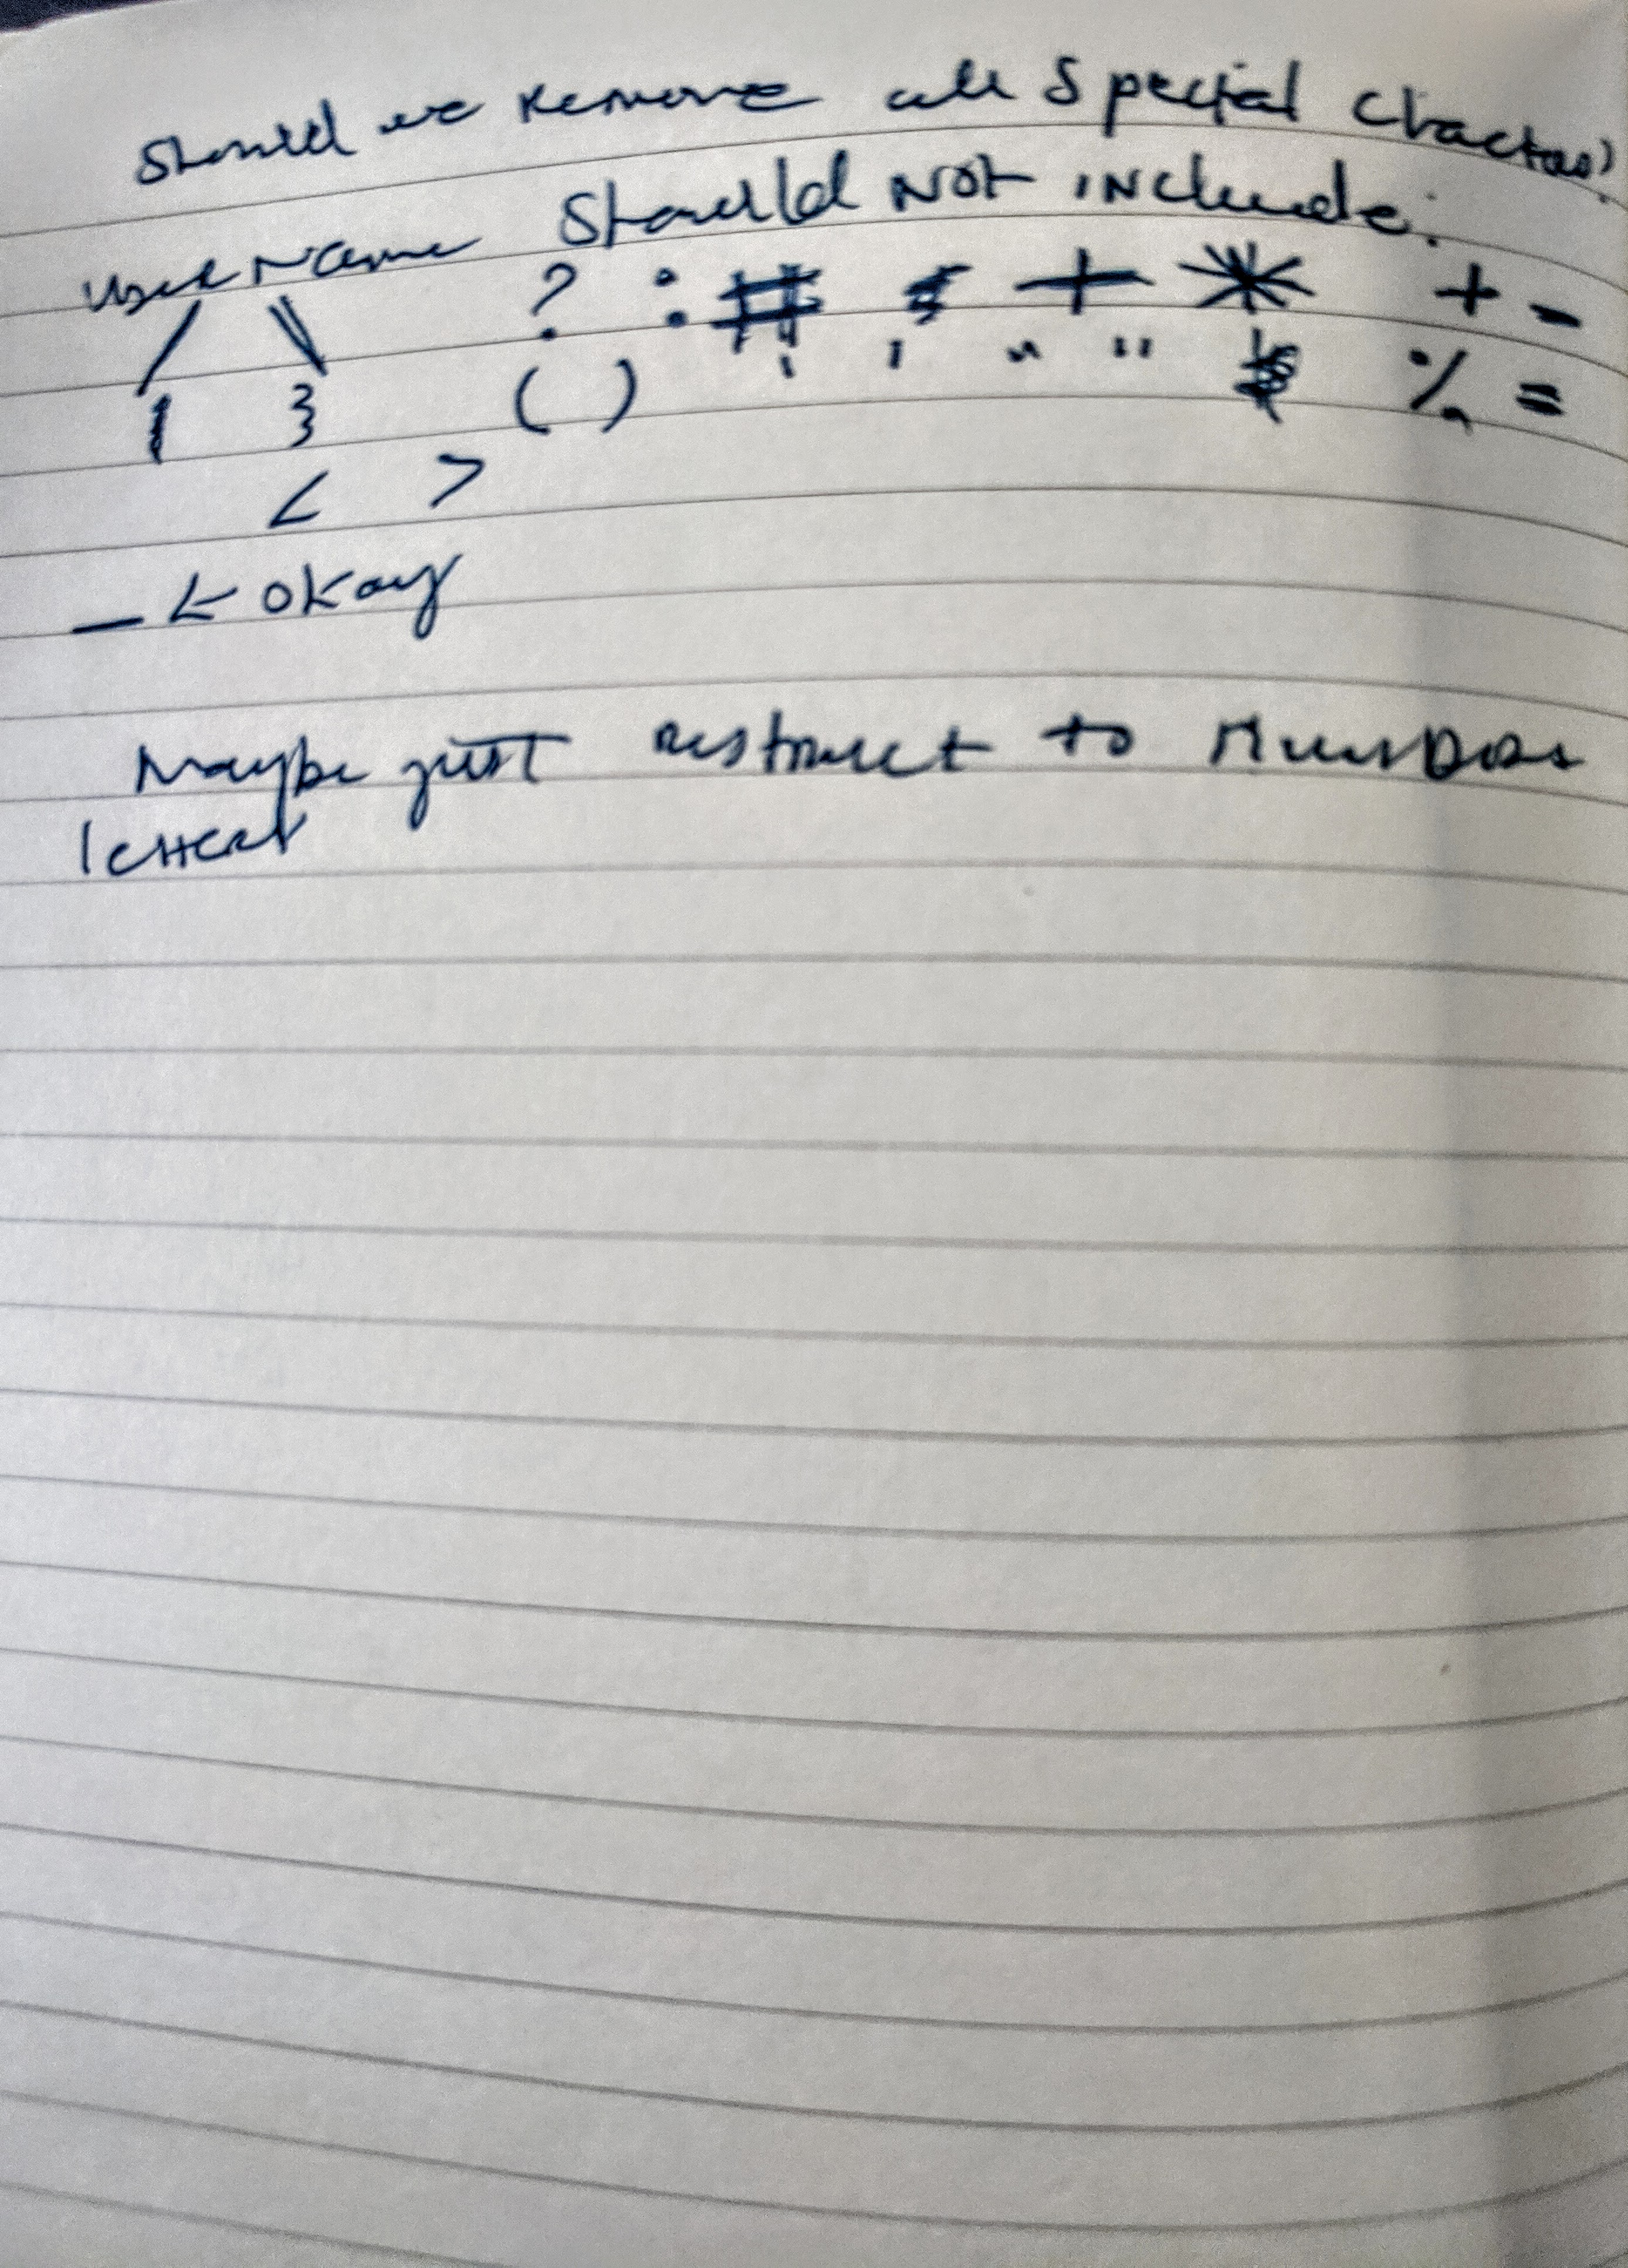 Should we remove all special chactas?
User Name should not include:
/ \ ? : # + * + -
} ( ) ' ' " " $ % =
< >
_ ← okay
Maybe just restrict to numbers
letters